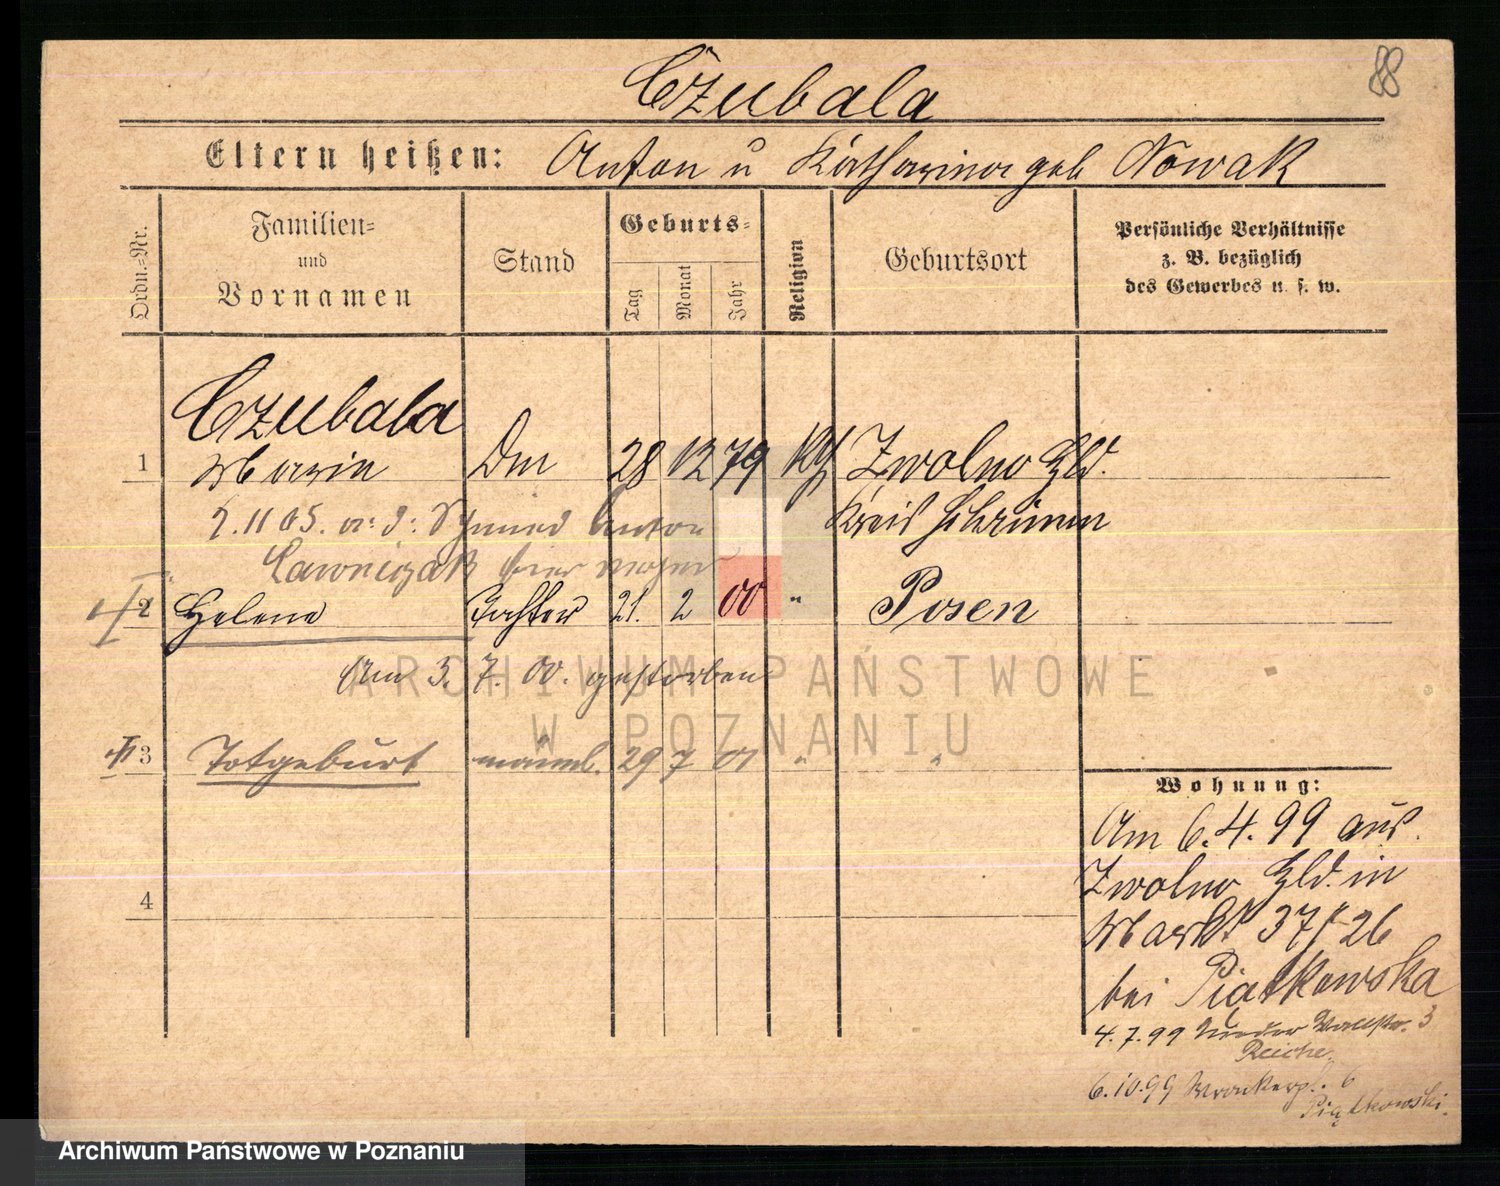 88
Czubala
Eltern heißen: Anton u Katharina geb Nowak
Ordn.-Nr.
Familien=
und
Vornamen
Stand
Geburts=
Tag
Monat
Jahr
Religion
Geburtsort
Persönliche Verhältnisse
z. B. bezüglich
des Gewerbes u. s. w.
Czubala
1 Marie Dm 28 12 79 Kth Zwolno Hld.
2.11 05. Schmied Anton Kreis Schrimm
Lawniczak hier
2 Helene Tochter 21. 2 00 " Posen
Am 3. 7. 00. gestorben
3 Totgeburt männl. 29 7 01 " "
4
Wohnung:
Am 6.4.99 aus
Zwolno Hld. in
Markt 37 26
bei Piatkowska
4.7.99 Wallstr. 3
Reiche.
6.10.99 Wronkerpl. 6
Piątkowski.
ARCHIWUM PAŃSTWOWE
W POZNANIU
Archiwum Państwowe w Poznaniu